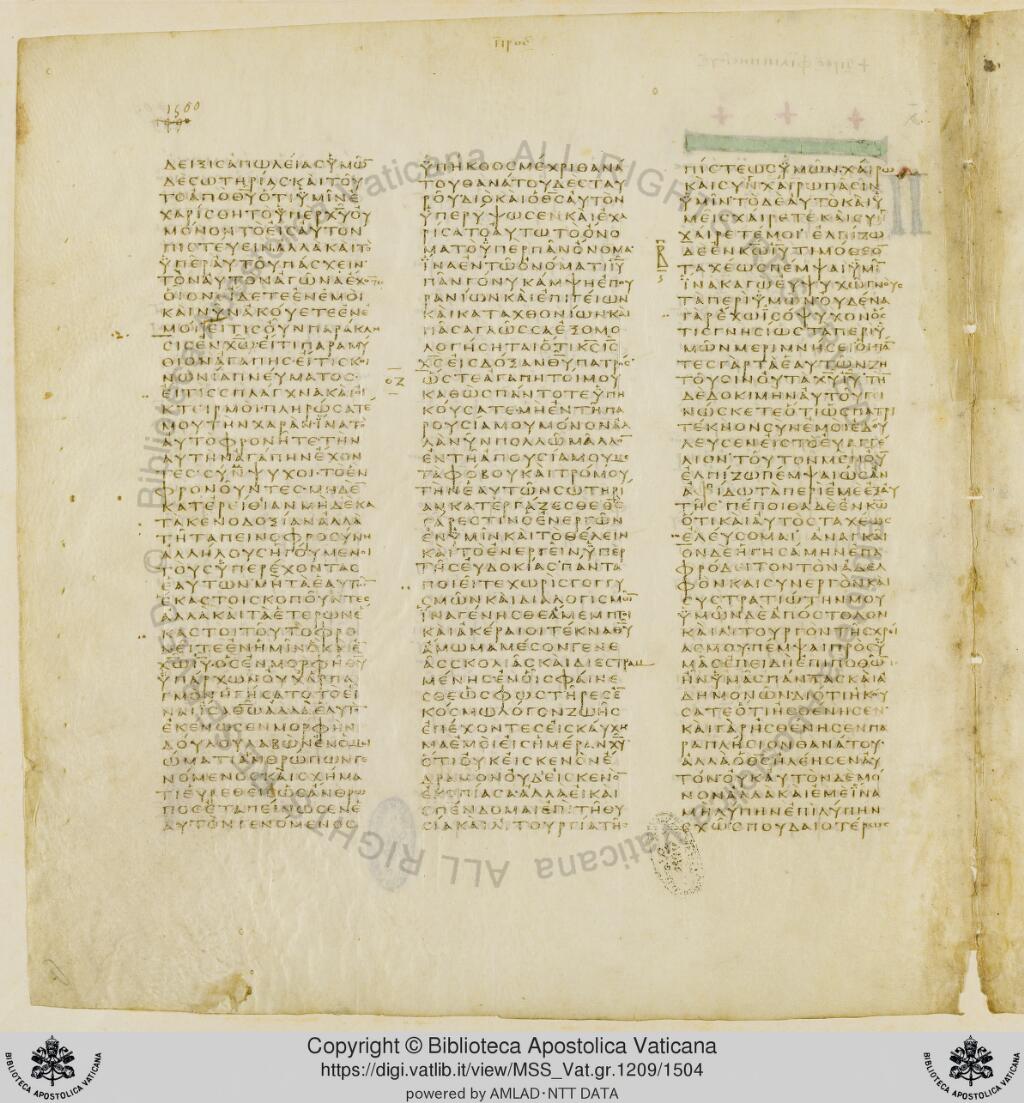 Προς
1500
ΔΕΙΞΙΣ ΑΠΩΛΕΙΑΣ ΫΜΩ̅
ΔΕ ΣΩΤΗΡΙΑΣ ΚΑΙ ΤΟΥ
ΤΟ ΑΠΟ Θ̅Υ̅ ΟΤΙ ΫΜΙΝ Ε
ΧΑΡΙΣΘΗ ΤΟ ΫΠΕΡ Χ̅Υ̅ ΟΥ
ΜΟΝΟΝ ΤΟ ΕΙΣ ΑΥΤΟΝ
ΠΙΣΤΕΥΕΙΝ ΑΛΛΑ ΚΑΙ ΤΟ
ΫΠΕΡ ΑΥΤΟΥ ΠΑΣΧΕΙΝ
ΤΟΝ ΑΥΤΟΝ ΑΓΩΝΑ ΕΧΟ̅ΤΕΣ
ΟΙΟΝ ΕΙΔΕΤΕ ΕΝ ΕΜΟΙ
ΚΑΙ ΝΥΝ ΑΚΟΥΕΤΕ ΕΝ Ε
ΜΟΙ ΕΙ ΤΙΣ ΟΥΝ ΠΑΡΑΚΛΗ
ΣΙΣ ΕΝ Χ̅Ω̅ ΕΙ ΤΙ ΠΑΡΑΜΥ
ΘΙΟΝ ΑΓΑΠΗΣ ΕΙ ΤΙΣ ΚΟΙ
ΝΩΝΙΑ ΠΝΕΥΜΑΤΟΣ
ΕΙ ΤΙΣ ΣΠΛΑΓΧΝΑ ΚΑΙ ΟΙ
ΚΤΕΙΡΜΟΙ ΠΛΗΡΩΣΑΤΕ
ΜΟΥ ΤΗΝ ΧΑΡΑΝ ΪΝΑ ΤΟ
ΑΥΤΟ ΦΡΟΝΗΤΕ ΤΗΝ
ΑΥΤΗΝ ΑΓΑΠΗΝ ΕΧΟΝ
ΤΕΣ ΣΥΝΨΥΧΟΙ ΤΟ ΕΝ
ΦΡΟΝΟΥΝΤΕΣ ΜΗΔΕ̅
ΚΑΤ ΕΡΕΙΘΙΑΝ ΜΗΔΕ ΚΑ
ΤΑ ΚΕΝΟΔΟΞΙΑΝ ΑΛΛΑ
ΤΗ ΤΑΠΕΙΝΟΦΡΟΣΥΝΗ
ΑΛΛΗΛΟΥΣ ΗΓΟΥΜΕΝΟΙ
ΤΟΥΣ ΫΠΕΡΕΧΟΝΤΑΣ
ΕΑΥΤΩΝ ΜΗ ΤΑ ΕΑΥΤΩ̅
ΕΚΑΣΤΟΙ ΣΚΟΠΟΥΝΤΕΣ
ΑΛΛΑ ΚΑΙ ΤΑ ΕΤΕΡΩΝ Ε
ΚΑΣΤΟΙ ΤΟΥΤΟ ΦΡΟ
ΝΕΙΤΕ ΕΝ ΗΜΙΝ Ο ΚΑΙ Ε̅
Χ̅Ω̅ Ι̅Υ̅ ΟΣ ΕΝ ΜΟΡΦΗ Θ̅Υ̅
ΫΠΑΡΧΩΝ ΟΥΧ ΑΡΠΑ
ΓΜΟΝ ΗΓΗΣΑΤΟ ΤΟ ΕΙ
ΝΑΙ ΙΣΑ Θ̅Ω̅ ΑΛΛΑ ΕΑΥΤΟ̅
ΕΚΕΝΩΣΕΝ ΜΟΡΦΗΝ
ΔΟΥΛΟΥ ΛΑΒΩΝ ΕΝ ΟΜΟΙ
ΩΜΑΤΙ ΑΝΘΡΩΠΩΝ ΓΕ
ΝΟΜΕΝΟΣ ΚΑΙ ΣΧΗΜΑ
ΤΙ ΕΥΡΕΘΕΙΣ ΩΣ ΑΝΘΡΩ
ΠΟΣ ΕΤΑΠΕΙΝΩΣΕΝ Ε
ΑΥΤΟΝ ΓΕΝΟΜΕΝΟΣ
ΫΠΗΚΟΟΣ ΜΕΧΡΙ ΘΑΝΑ
ΤΟΥ ΘΑΝΑΤΟΥ ΔΕ ΣΤΑΥ
ΡΟΥ ΔΙΟ ΚΑΙ Ο Θ̅Σ̅ ΑΥΤΟΝ
ΫΠΕΡΥΨΩΣΕΝ ΚΑΙ ΕΧΑ
ΡΙΣΑΤΟ ΑΥΤΩ ΤΟ ΟΝΟ
ΜΑ ΤΟ ΫΠΕΡ ΠΑΝ ΟΝΟΜΑ
ΪΝΑ ΕΝ ΤΩ ΟΝΟΜΑΤΙ Ι̅Υ̅
ΠΑΝ ΓΟΝΥ ΚΑΜΨΗ ΕΠΟΥ
ΡΑΝΙΩΝ ΚΑΙ ΕΠΙΓΕΙΩΝ
ΚΑΙ ΚΑΤΑΧΘΟΝΙΩΝ ΚΑΙ
ΠΑΣΑ ΓΛΩΣΣΑ ΕΞΟΜΟ
ΛΟΓΗΣΗΤΑΙ ΟΤΙ Κ̅Σ̅ Ι̅Σ̅
Χ̅Σ̅ ΕΙΣ ΔΟΞΑΝ Θ̅Υ̅ ΠΑΤΡΟΣ
ΟΖ
ΩΣΤΕ ΑΓΑΠΗΤΟΙ ΜΟΥ
ΚΑΘΩΣ ΠΑΝΤΟΤΕ ΫΠΗ
ΚΟΥΣΑΤΕ ΜΗ ΕΝ ΤΗ ΠΑ
ΡΟΥΣΙΑ ΜΟΥ ΜΟΝΟΝ ΑΛ
ΛΑ ΝΥΝ ΠΟΛΛΩ ΜΑΛΛΟ̅
ΕΝ ΤΗ ΑΠΟΥΣΙΑ ΜΟΥ ΜΕ
ΤΑ ΦΟΒΟΥ ΚΑΙ ΤΡΟΜΟΥ
ΤΗΝ ΕΑΥΤΩΝ ΣΩΤΗΡΙ
ΑΝ ΚΑΤΕΡΓΑΖΕΣΘΕ Θ̅Σ̅
ΓΑΡ ΕΣΤΙΝ Ο ΕΝΕΡΓΩΝ
ΕΝ ΫΜΙΝ ΚΑΙ ΤΟ ΘΕΛΕΙΝ
ΚΑΙ ΤΟ ΕΝΕΡΓΕΙΝ ΫΠΕΡ
ΤΗΣ ΕΥΔΟΚΙΑΣ ΠΑΝΤΑ
ΠΟΙΕΙΤΕ ΧΩΡΙΣ ΓΟΓΓΥ
ΣΜΩΝ ΚΑΙ ΔΙΑΛΟΓΙΣΜΩ̅
ΪΝΑ ΓΕΝΗΣΘΕ ΑΜΕΜΠΤΟΙ
ΚΑΙ ΑΚΕΡΑΙΟΙ ΤΕΚΝΑ Θ̅Υ̅
ΑΜΩΜΑ ΜΕΣΟΝ ΓΕΝΕ
ΑΣ ΣΚΟΛΙΑΣ ΚΑΙ ΔΙΕΣΤΡΑΜ
ΜΕΝΗΣ ΕΝ ΟΙΣ ΦΑΙΝΕ
ΣΘΕ ΩΣ ΦΩΣΤΗΡΕΣ Ε̅
ΚΟΣΜΩ ΛΟΓΟΝ ΖΩΗΣ
ΕΠΕΧΟΝΤΕΣ ΕΙΣ ΚΑΥΧΗ
ΜΑ ΕΜΟΙ ΕΙΣ ΗΜΕΡΑΝ Χ̅Υ̅
ΟΤΙ ΟΥΚ ΕΙΣ ΚΕΝΟΝ Ε
ΔΡΑΜΟΝ ΟΥΔ ΕΙΣ ΚΕΝΟ̅
ΕΚΟΠΙΑΣΑ ΑΛΛΑ ΕΙ ΚΑΙ
ΣΠΕΝΔΟΜΑΙ ΕΠΙ ΤΗ ΘΥ
ΣΙΑ ΚΑΙ ΛΙΤΟΥΡΓΙΑ ΤΗΣ
ΠΙΣΤΕΩΣ ΫΜΩΝ ΧΑΙΡΩ
ΚΑΙ ΣΥΝΧΑΙΡΩ ΠΑΣΙΝ
ΫΜΙΝ ΤΟ ΔΕ ΑΥΤΟ ΚΑΙ Ϋ
ΜΕΙΣ ΧΑΙΡΕΤΕ ΚΑΙ ΣΥΝ
ΧΑΙΡΕΤΕ ΜΟΙ ΕΛΠΙΖΩ
ΔΕ ΕΝ Κ̅Ω̅ Ι̅Υ̅ ΤΙΜΟΘΕΟ̅
ΤΑΧΕΩΣ ΠΕΜΨΑΙ ΫΜΙ̅
ΪΝΑ ΚΑΓΩ ΕΥΨΥΧΩ ΓΝΟΥΣ
ΤΑ ΠΕΡΙ ΫΜΩΝ ΟΥΔΕΝΑ
ΓΑΡ ΕΧΩ ΙΣΟΨΥΧΟΝ ΟΣ
ΤΙΣ ΓΝΗΣΙΩΣ ΤΑ ΠΕΡΙ Ϋ
ΜΩΝ ΜΕΡΙΜΝΗΣΕΙ ΟΙ ΠΑ̅
ΤΕΣ ΓΑΡ ΤΑ ΕΑΥΤΩΝ ΖΗ
ΤΟΥΣΙΝ ΟΥ ΤΑ Χ̅Υ̅ Ι̅Υ̅ ΤΗ̅
ΔΕ ΔΟΚΙΜΗΝ ΑΥΤΟΥ ΓΙ
ΝΩΣΚΕΤΕ ΟΤΙ ΩΣ ΠΑΤΡΙ
ΤΕΚΝΟΝ ΣΥΝ ΕΜΟΙ ΕΔΟΥ
ΛΕΥΣΕΝ ΕΙΣ ΤΟ ΕΥΑΓΓΕ
ΛΙΟΝ ΤΟΥΤΟΝ ΜΕΝ ΟΥ̅
ΕΛΠΙΖΩ ΠΕΜΨΑΙ ΩΣ ΑΝ
ΑΦΙΔΩ ΤΑ ΠΕΡΙ ΕΜΕ ΕΞΑΥ
ΤΗΣ ΠΕΠΟΙΘΑ ΔΕ ΕΝ Κ̅Ω̅
ΟΤΙ ΚΑΙ ΑΥΤΟΣ ΤΑΧΕΩΣ
ΕΛΕΥΣΟΜΑΙ ΑΝΑΓΚΑΙ
ΟΝ ΔΕ ΗΓΗΣΑΜΗΝ ΕΠΑ
ΦΡΟΔΕΙΤΟΝ ΤΟΝ ΑΔΕΛ
ΦΟΝ ΚΑΙ ΣΥΝΕΡΓΟΝ ΚΑΙ
ΣΥΣΤΡΑΤΙΩΤΗΝ ΜΟΥ
ΫΜΩΝ ΔΕ ΑΠΟΣΤΟΛΟΝ
ΚΑΙ ΛΙΤΟΥΡΓΟΝ ΤΗΣ ΧΡΕΙ
ΑΣ ΜΟΥ ΠΕΜΨΑΙ ΠΡΟΣ Ϋ
ΜΑΣ ΕΠΕΙΔΗ ΕΠΙΠΟΘΩ̅
ΗΝ ΫΜΑΣ ΠΑΝΤΑΣ ΚΑΙ Α
ΔΗΜΟΝΩΝ ΔΙΟΤΙ ΗΚΟΥ
ΣΑΤΕ ΟΤΙ ΗΣΘΕΝΗΣΕΝ
ΚΑΙ ΓΑΡ ΗΣΘΕΝΗΣΕΝ ΠΑ
ΡΑΠΛΗΣΙΟΝ ΘΑΝΑΤΟΥ
ΑΛΛΑ Ο Θ̅Σ̅ ΗΛΕΗΣΕΝ ΑΥ
ΤΟΝ ΟΥΚ ΑΥΤΟΝ ΔΕ ΜΟ
ΝΟΝ ΑΛΛΑ ΚΑΙ ΕΜΕ ΪΝΑ
ΜΗ ΛΥΠΗΝ ΕΠΙ ΛΥΠΗΝ
ΣΧΩ ΣΠΟΥΔΑΙΟΤΕΡΩΣ
Copyright © Biblioteca Apostolica Vaticana
https://digi.vatlib.it/view/MSS_Vat.gr.1209/1504
powered by AMLAD·NTT DATA
BIBLIOTECA APOSTOLICA VATICANA
BIBLIOTECA APOSTOLICA VATICANA